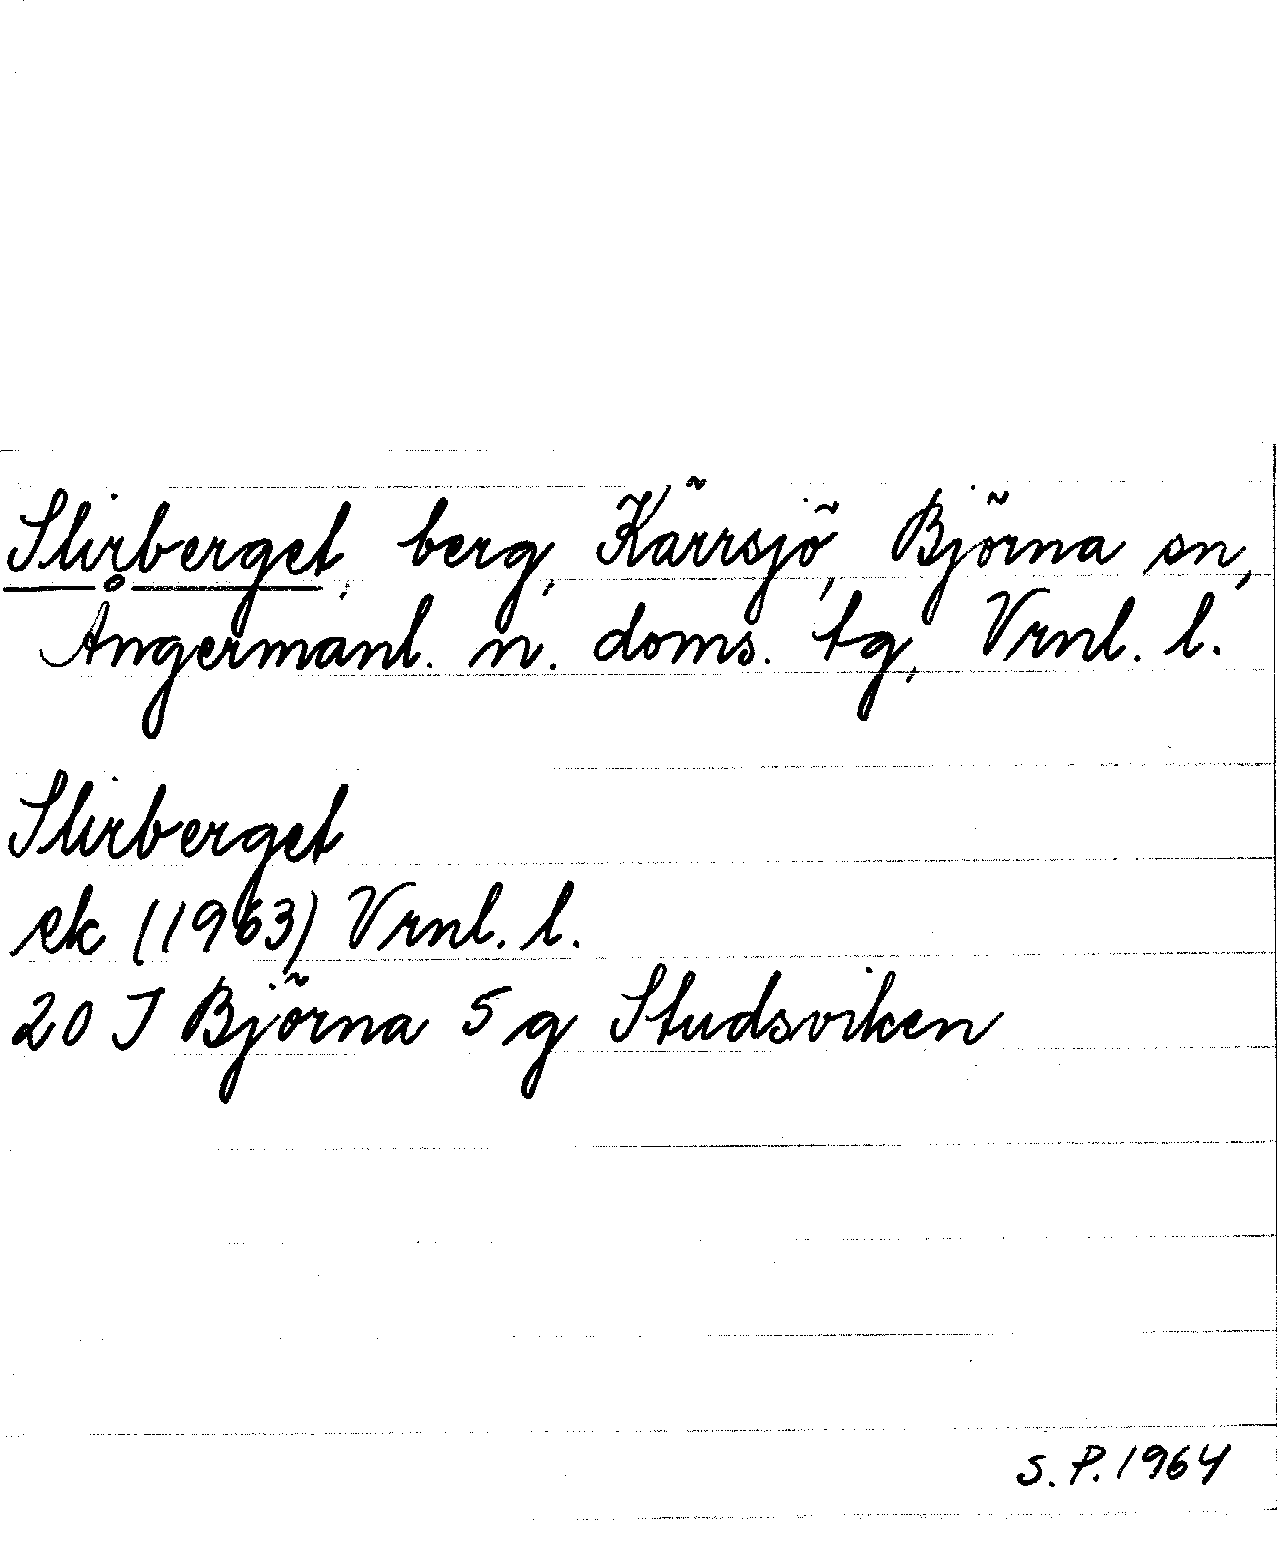 Slirberget, berg, Kärrsjö, Björna sn,
Ångermanl. n. doms. tg, Vrnl. l.
Slirberget
ek (1963) Vrnl. l.
20 J Björna 5 g Studsviken
S. P. 1964